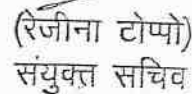 (रेजीना टोप्पो)
संयुक्त सचिव